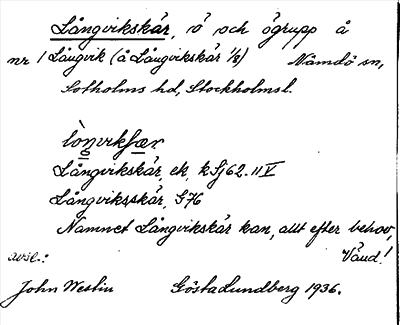 Långvikskär, ö och ögrupp å
nr 1 Långvik (å Långvikskär 1/8) Nämdö sn,
Sotholms hd, Stockholmsl.
Långvikskär, ek, k Sj 62. II V
Långviksskär, S 76
Namnet Långvikskär kan, allt efter behov,
avse: Vänd!
John Westin Gösta Lundberg 1936.